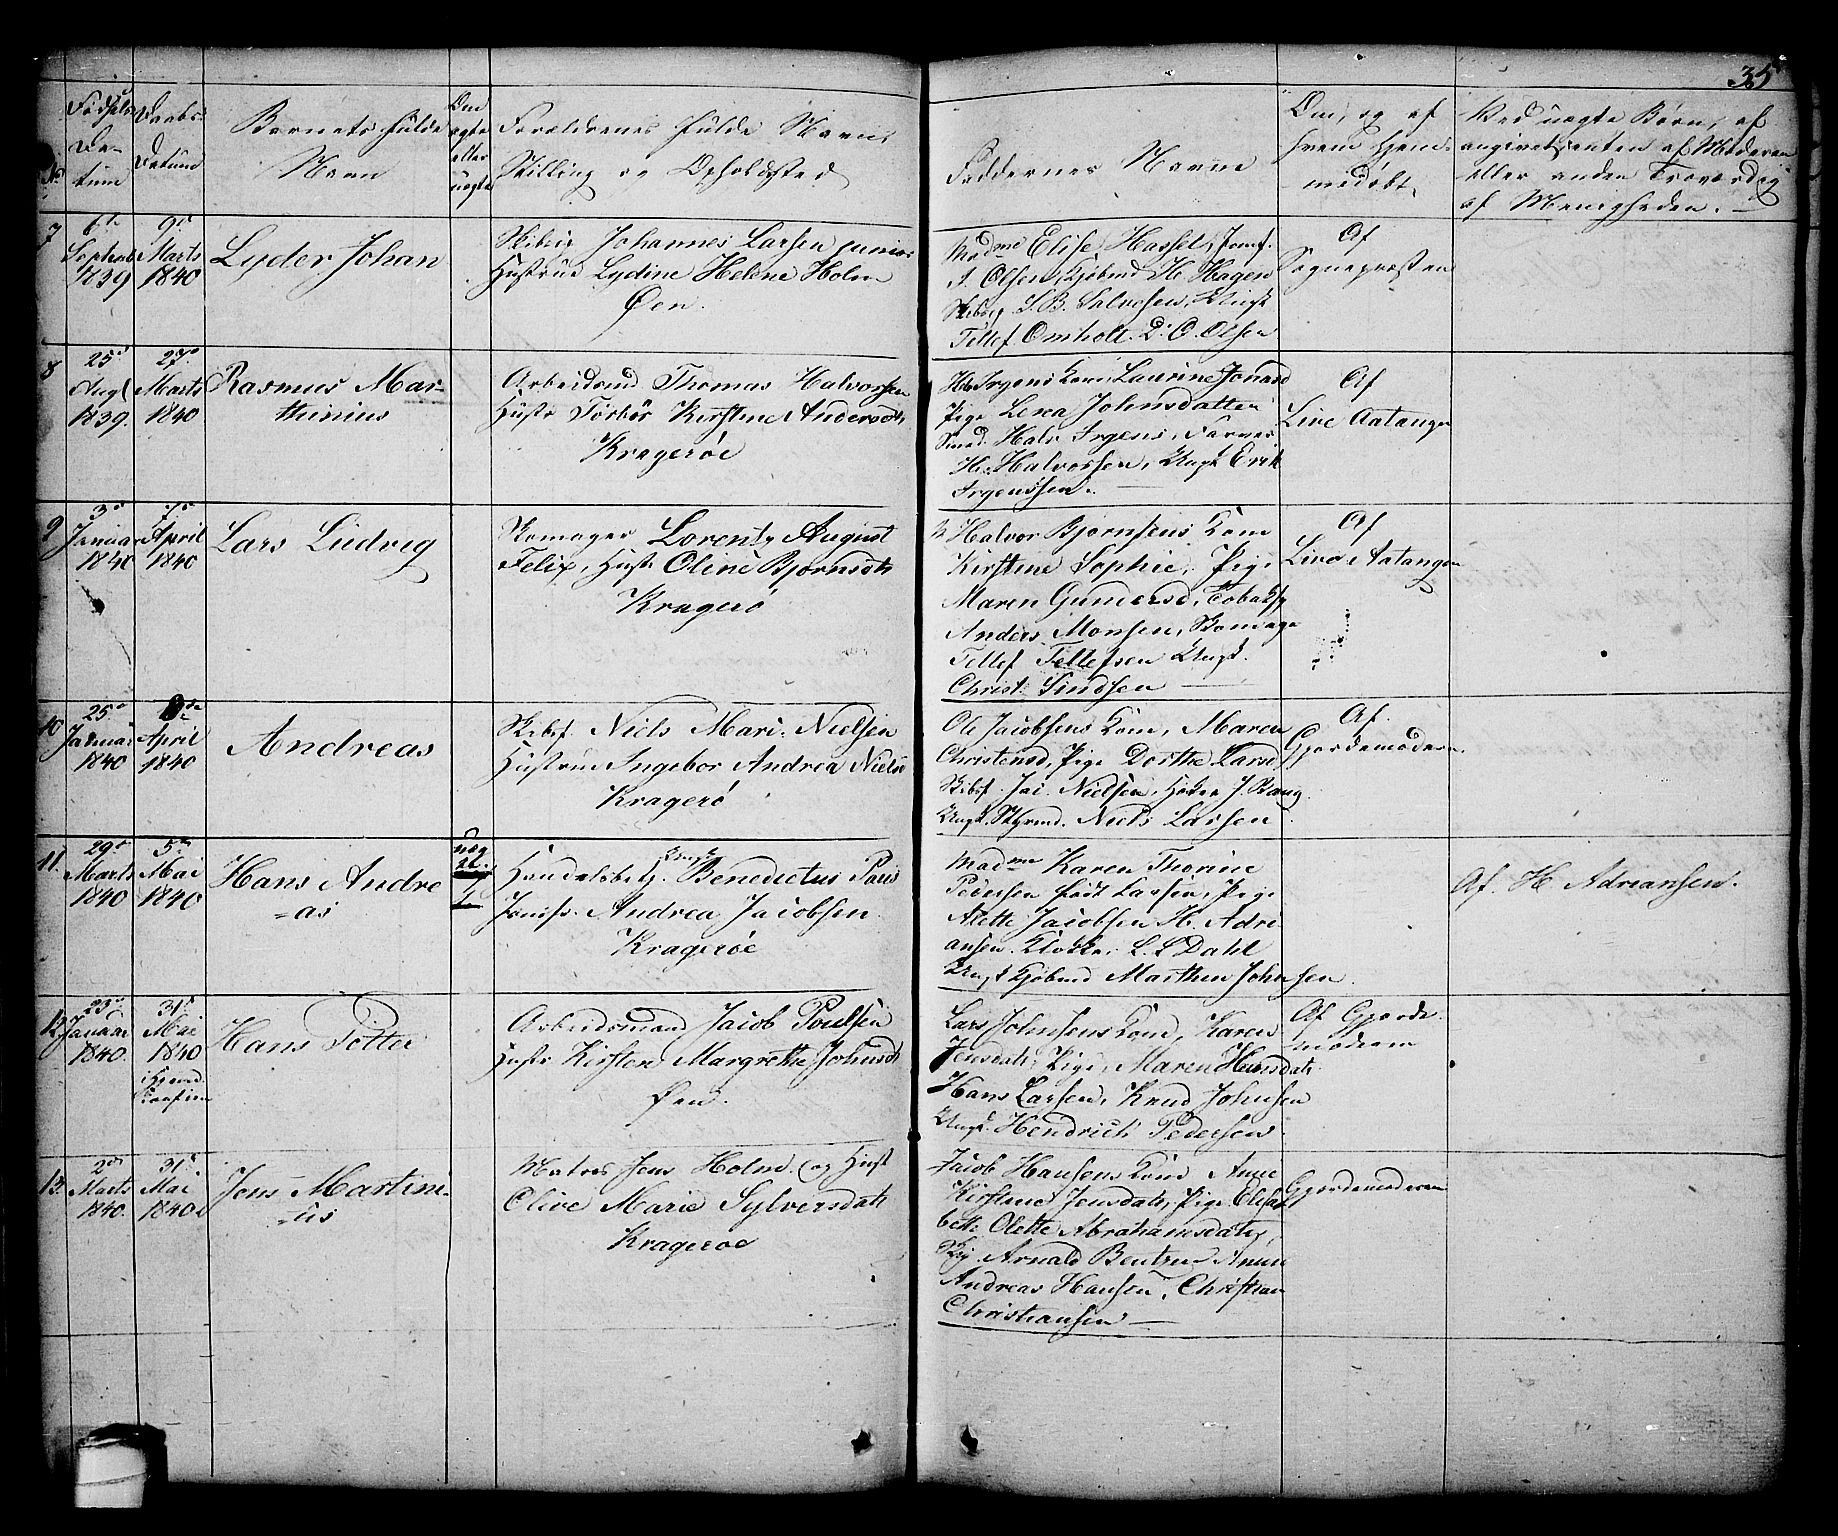 35
No
Fødsels-
Da-
tum
Daabs-
Datum
Barnets fulde
Navn
Om
ægte
eller
uægte
Forældrenes fulde Navn,
Stilling og Opholdsted
Faddernes Navne
Om, og af
hvem hjem-
medøbt,
Ved uægte Børn, af
angivet enten af Moderen
eller anden Troværdig
af Menigheden. —
7
6te
Septemb
1839
9de
Marts
1840
Lyder Johan
Johannes Larsen junior
Hustrue Lydine Helene Holm
Øen.
Madme Elise Hassel, Jomf.
J. Olsen, Kjøbmd H. Hagen
S. B. Salvesen, Ungk
Tellef Omholt. D. O. Olsen
Af
Sognepræsten
8
25de
Aug
1839.
27de
Marts
1840
Rasmus Mar-
thinius
Arbeidsmd Thomas Halvorsen
Hustr Torbør Kirstine Andersdt,
Kragerøe
Irgens Kone, Laurine
Pige Lena Johnsdatter
Smed. Halv Irgens, Farver
H. Halvorsen, Ungk Erik
Irgenssen.
Af
Live Aatangen
9
3de
Januar
1840
7de
April
1840
Lars Ludvig
Skomager Lorentz August
Felix, Hustr Oline Bjørnsdt
Kragerø
Halvor Bjørnsens Kone
Kirstine Sophie, Pige
Maren Gunersd,
Anders Monsen, Skomager
Tellef Tellefsen Ungk.
Christ: Lindsen
Af
Live Aatangen
10
25de
Januar
1840
April
1840
Andreas
Skibsf. Niels Mari. Nielsen
Hustrue Ingebor Andrea Niels
Kragerø
Ole Jacobsens Kone, Maren
Christensd, Pige Dorthe Larsd
Skibsf. Jac. Nielsen, J. Bang
Ungk. Styrmd. Niels Larsen
Af
Gjordemoderen.
11.
29de
Marts
1840
5te
Mai
1840
Hans Andre
=as
uæg
te
1
Handelsbetj. Ungk Benedictus
Jomfr. Andrea Jacobsen
Kragerøe
Madme Karen Thorine
Pedersen født Larsen, Pige
Anette Jacobsen H. Adri
ansen. Klokker L. L Dahl
Ungk Kjøbmd Marthen Johnsen.
Af. H. Adriansen.
12
23de
Januar
1840.
31te
Mai
1840
Hans Petter
Arbeidsmand Jacob Poulsen
Hustr Kirsten Margrethe Johnsdt
Øen.
Lars Johnsens Kone, Karen
Jensdatr, Pige, Maren Hansdatr.
Hans Larsen, Knud Johnsen
Ungk. Hendrich Pedersen.
Af Gjorde-
moderen
13.
2den
Marts
1840.
31te
Mai
1840
Jens Martini-
=us
Matros Jens Holm. og Hust
Olive Marie Sylversdatr
Kragerøe
Jacob Hansens Kone Anne
Kirstine Jensdatr, Pige Elisa
beth Olette Abrahamsdatr,
Arnald Bentzen
Andreas Hansen, Christian
Christiansen —
Gjordemoderen